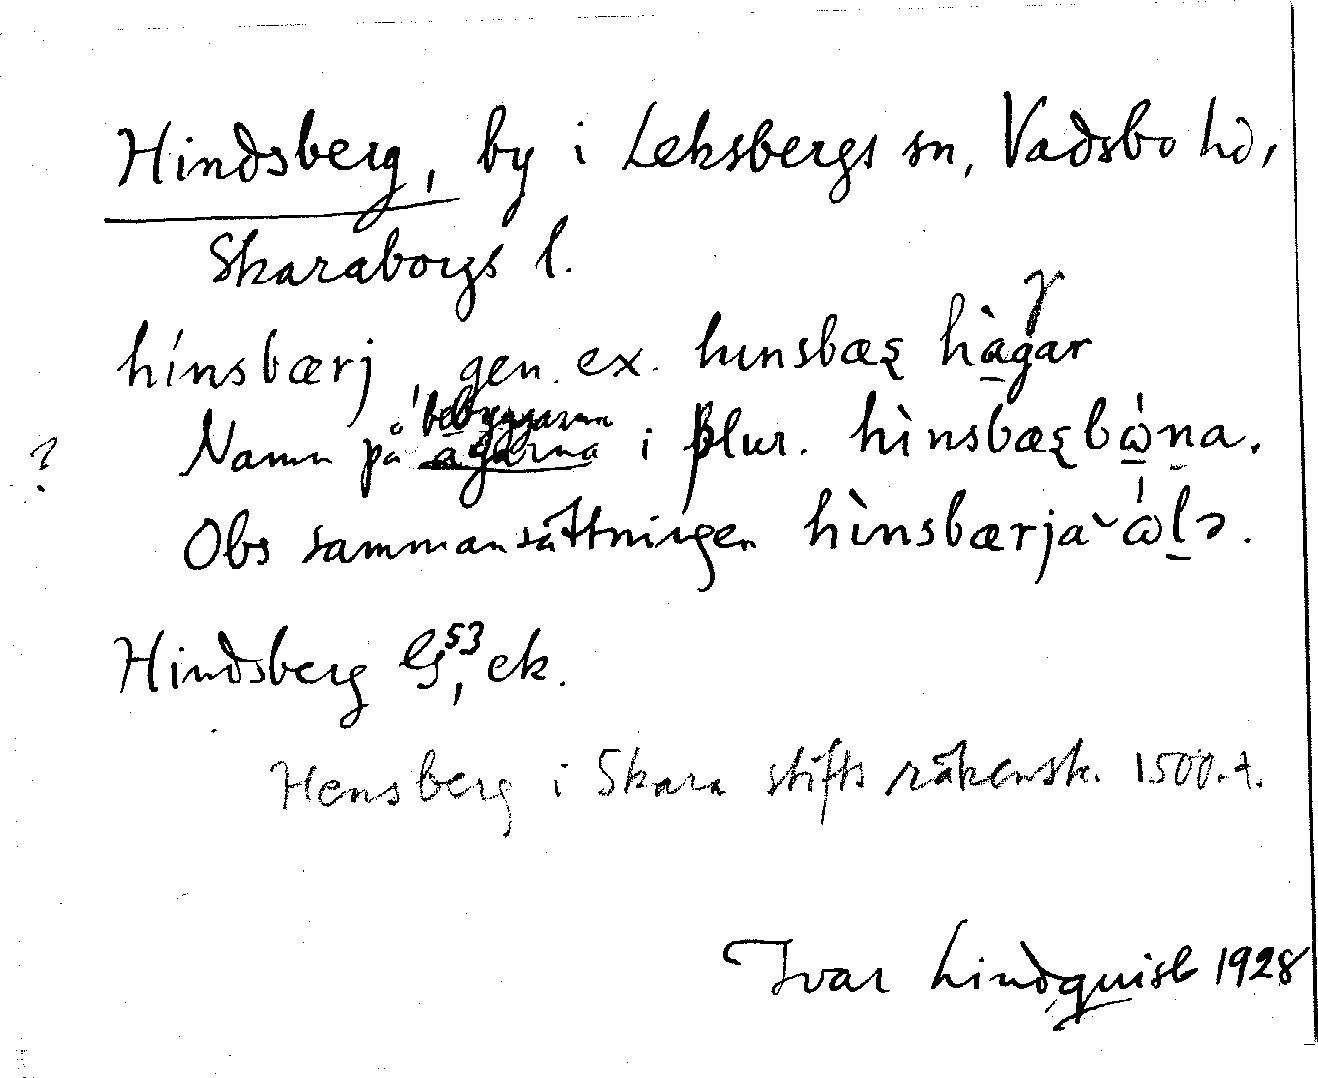 Hindsberg, by i Leksbergs sn, Vadsbo hd,
Skaraborgs l.
hínsbærj, gen. ex. hınsbæꞅ hàgar
γ
bebyggarna
? Namn på ägarna i plur. hìnsbæꞅbω̇na.
Obs sammansättningen hìnsbærjàω̇lɔ.
Hindsberg G⁵³, ek.
Hensberg i Skara stifts räkensk. 1500.t.
Ivar Lindquist 1928